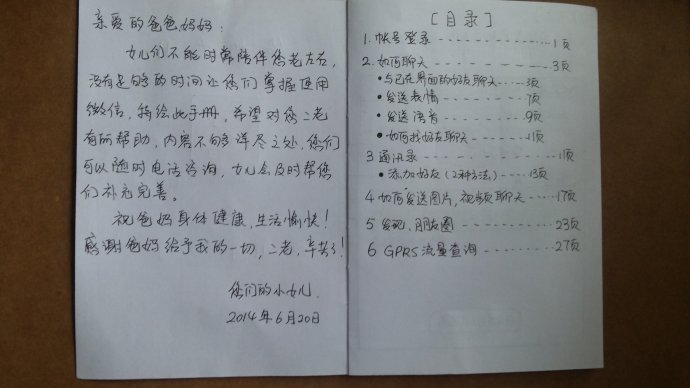 亲爱的爸爸妈妈：
女儿们不能时常陪伴您老左右，
没有足够的时间让您们掌握使用
微信，特绘此手册，希望对您二老
有所帮助，内容不够详尽之处，您们
可以随时电话咨询，女儿会及时帮您
们补充完善。
祝爸妈身体健康，生活愉快！
感谢爸妈给予我的一切，二老，辛苦了！
您们的小女儿
2014年6月20日
［目录］
1. 帐号登录 ------------ 1页
2. 如何聊天 ------------ 3页
• 与已在界面的好友聊天 ---- 3页
• 发送表情 ------------ 7页
• 发送语音 ------------ 9页
• 如何找好友聊天 -------- 11页
3 通讯录 ------------ 11页
• 添加好友（2种方法）----- 13页
4 如何发送图片,视频聊天 ---- 17页
5 发现、朋友圈 --------- 23页
6 GPRS流量查询 --------- 27页